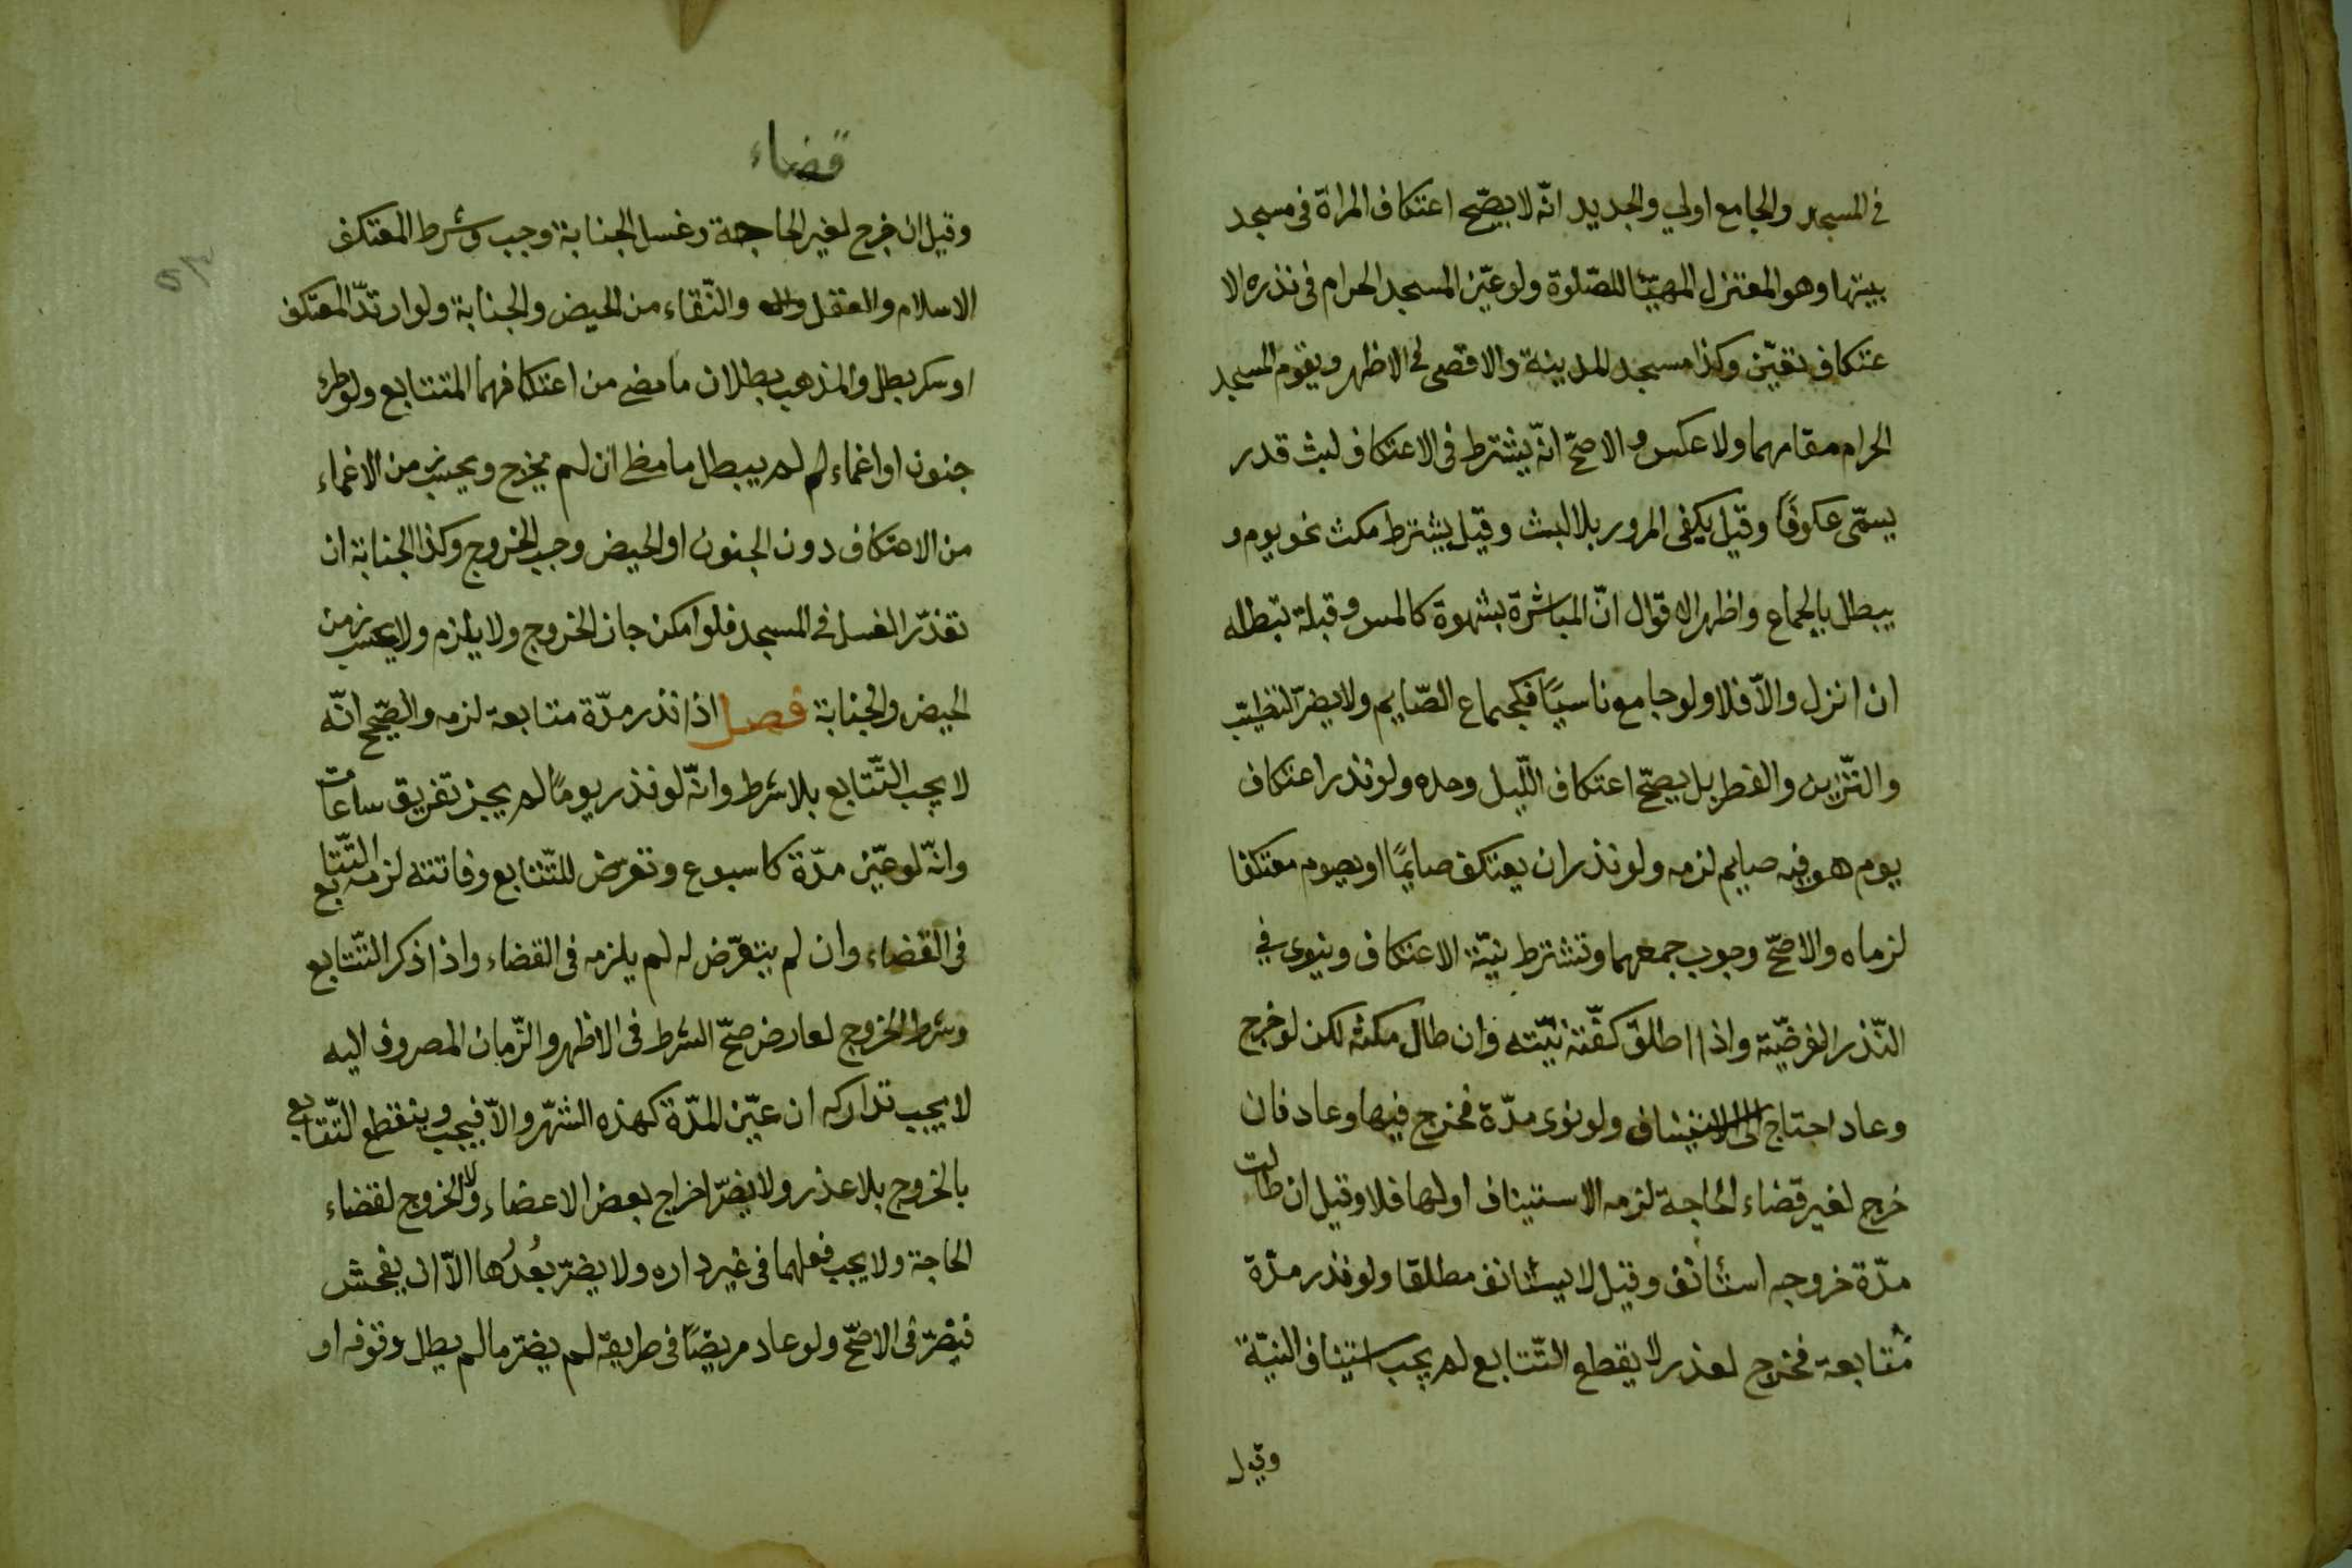 في المسجد والجامع اولي والجديد انّه لا يصّح اعتكاف المراة في مسجد
بيتها وهو المعتزل المهيّئا للصّلوة ولو عيّن المسجد الحرام في نذره الا
عتكاف تعيّن وكذا مسجد المدينة والاقصى في الاظهر ويقوم المسجد
الحرام مقامهما ولا عكس والاصحّ انّه يشترط في الاعتكاف لبث قدر
يسمّى عكوفًا وقيل يكفى المرور بلا لبث وقيل يشترط مكث نحو يوم و
يبطل بالجماع واظهر الاقوال انّ المباشرة بشهوة كالمس وقبلة تبطله
ان انزل والاّ فلا ولو جامع ناسيًا فكجماع الصّايم ولا يضرّ التطيّب
والتّزين والفطر بل يصحّ اعتكاف اللّيل وحده ولو نذر اعتكاف
يوم هو فيه صايم لزمه ولو نذر ان يعتكف صايمًا او يصوم معتكفا
لزماه والاصحّ وجوب جمعهما وتشترط نيّة الاعتكاف وينوى في
النّذر الفرضيّة واذا اطلق كفّته نيّته وان طال مكثه لكن لو خرج
وعاد احتاج الى الاستيناف ولو نوى مدّة فخرج فيها وعاد فان
خرج لغير قضاء الحاجة لزمه الاستيناف او لها فلا وقيل ان طالت
مدّة خروجه استأنف وقيل لا يستأنف مطلقا ولو نذر مدّة
مُتتابعة فخرج لعذر لا يقطع التّتابع لم يجب استيناف النيّة
وقيل
قضاء
وقيل ان خرج لغير الحاجة وغسل الجنابة وجب وشرط المعتكف
الاسلام والعقل والنّقاء من الحيض والجنابة ولو ارتدّ المعتكف
او سكر بطل والمذهب بطلان ما مضى من اعتكافهما المتتابع ولو طرء
جنون او اغماء لم لم يبطل ما مظى ان لم يخرج ويحسب زمن الاغماء
من الاعتكاف دون الجنون او الحيض وجب الخروج وكذا الجنابة ان
تعذّر الغسل في المسجد فلو امكن جاز الخروج ولا يلزم ولا يحسب زمن
الحيض والجنابة فصل اذا نذر مدّة متتابعة لزمه والصّحيح انّه
لا يجب التّتابع بلا شرط وانّه لو نذر يومًا لم يجز تفريق ساعات
وانّه لو عيّن مدّة كاسبوع وتعرّض للتّتابع وفاتته لزمه التّتابع
في القضاء وان لم يتعرّض له لم يلزمه في القضاء واذا ذكر التّتابع
وشرط الخروج لعارض صحّ الشرط في الاظهر والزّمان المصروف اليه
لا يجب تداركه ان عيّن المدّة كهذه الشهّر والاّ فيجب وينقطع التّتابع
بالخروج بلا عذر ولا يضرّ اخراج بعض الاعضاء ولا الخروج لقضاء
الحاجة ولا يجب فعلهما في غير داره ولا يضرّ بُعدُها الاّ ان يفحش
فيضرّ في الاصحّ ولو عاد مريضًا في طريقه لم يضرّ ما لم يطل وقوفه او